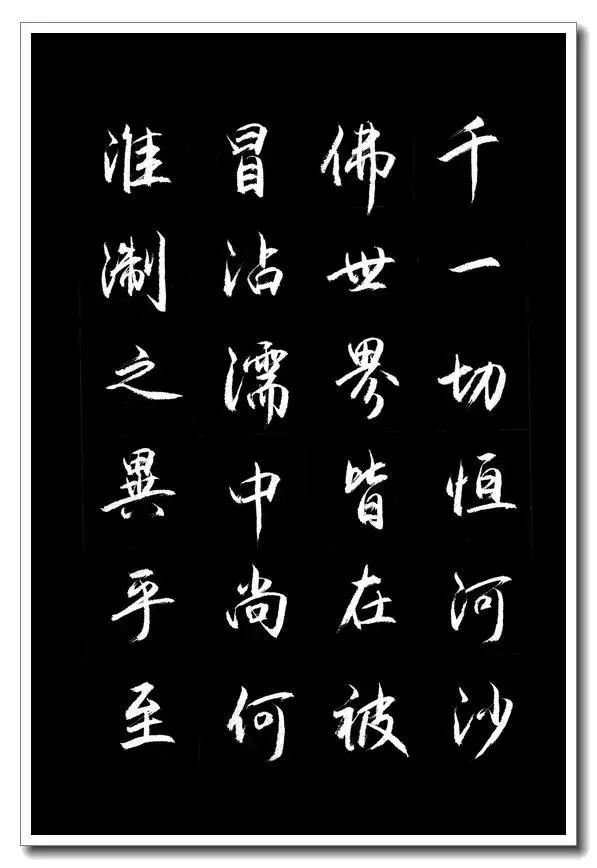 千一切恒河沙
佛世界皆在被
冒沾濡中尚何
淮淛之異乎至